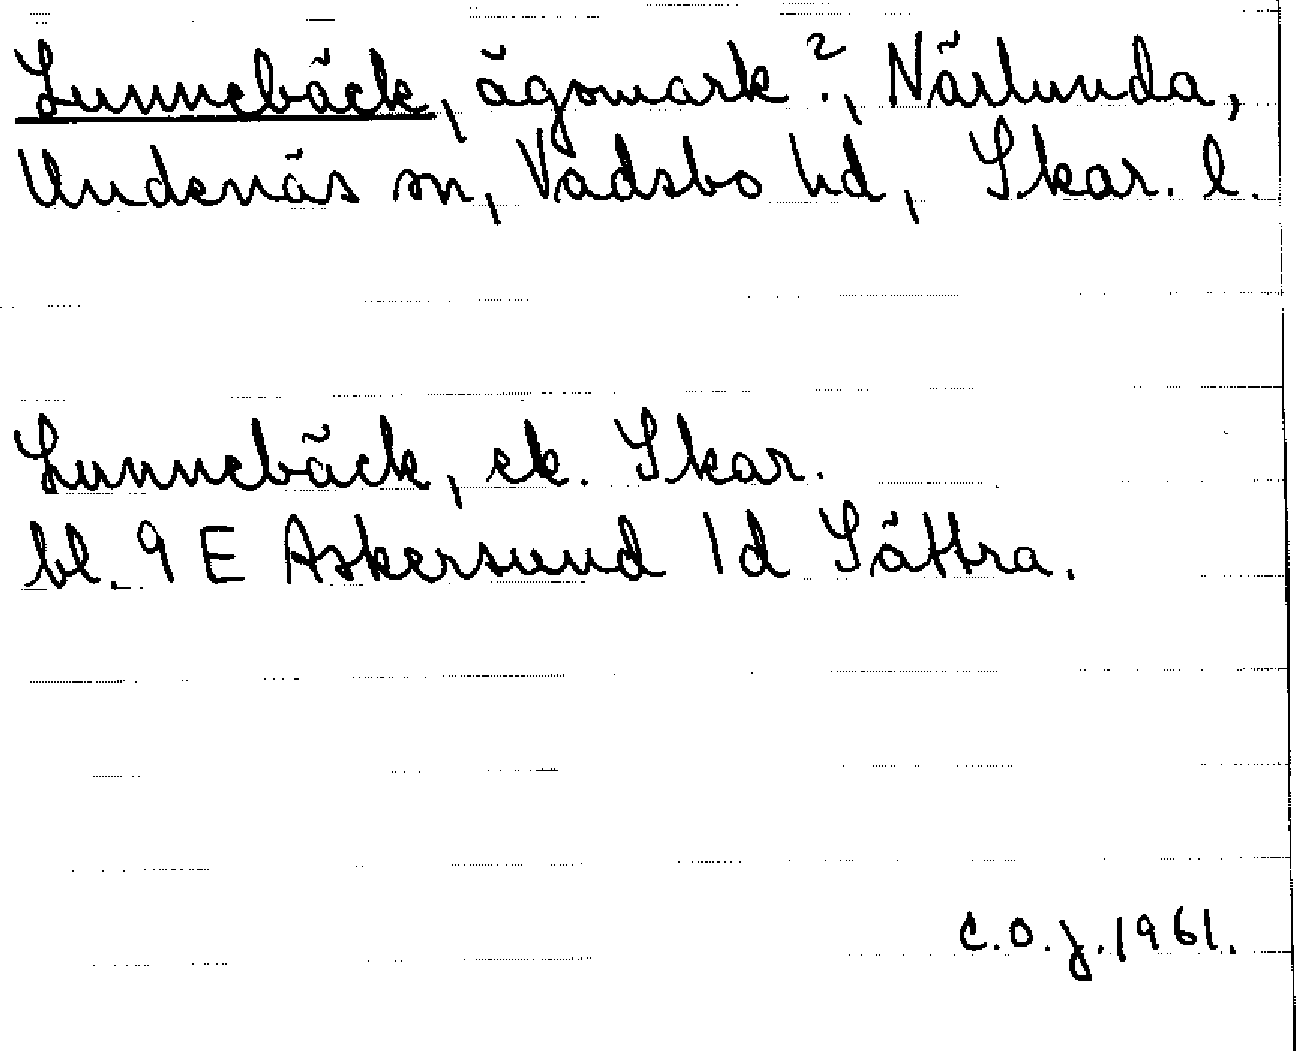 Lunnebäck, ägomark?, Närlunda,
Undenäs sn, Vadsbo hd, Skar. l.
Lunnebäck, ek. Skar.
bl. 9 E Askersund 1d Sättra.
C.O.J. 1961.